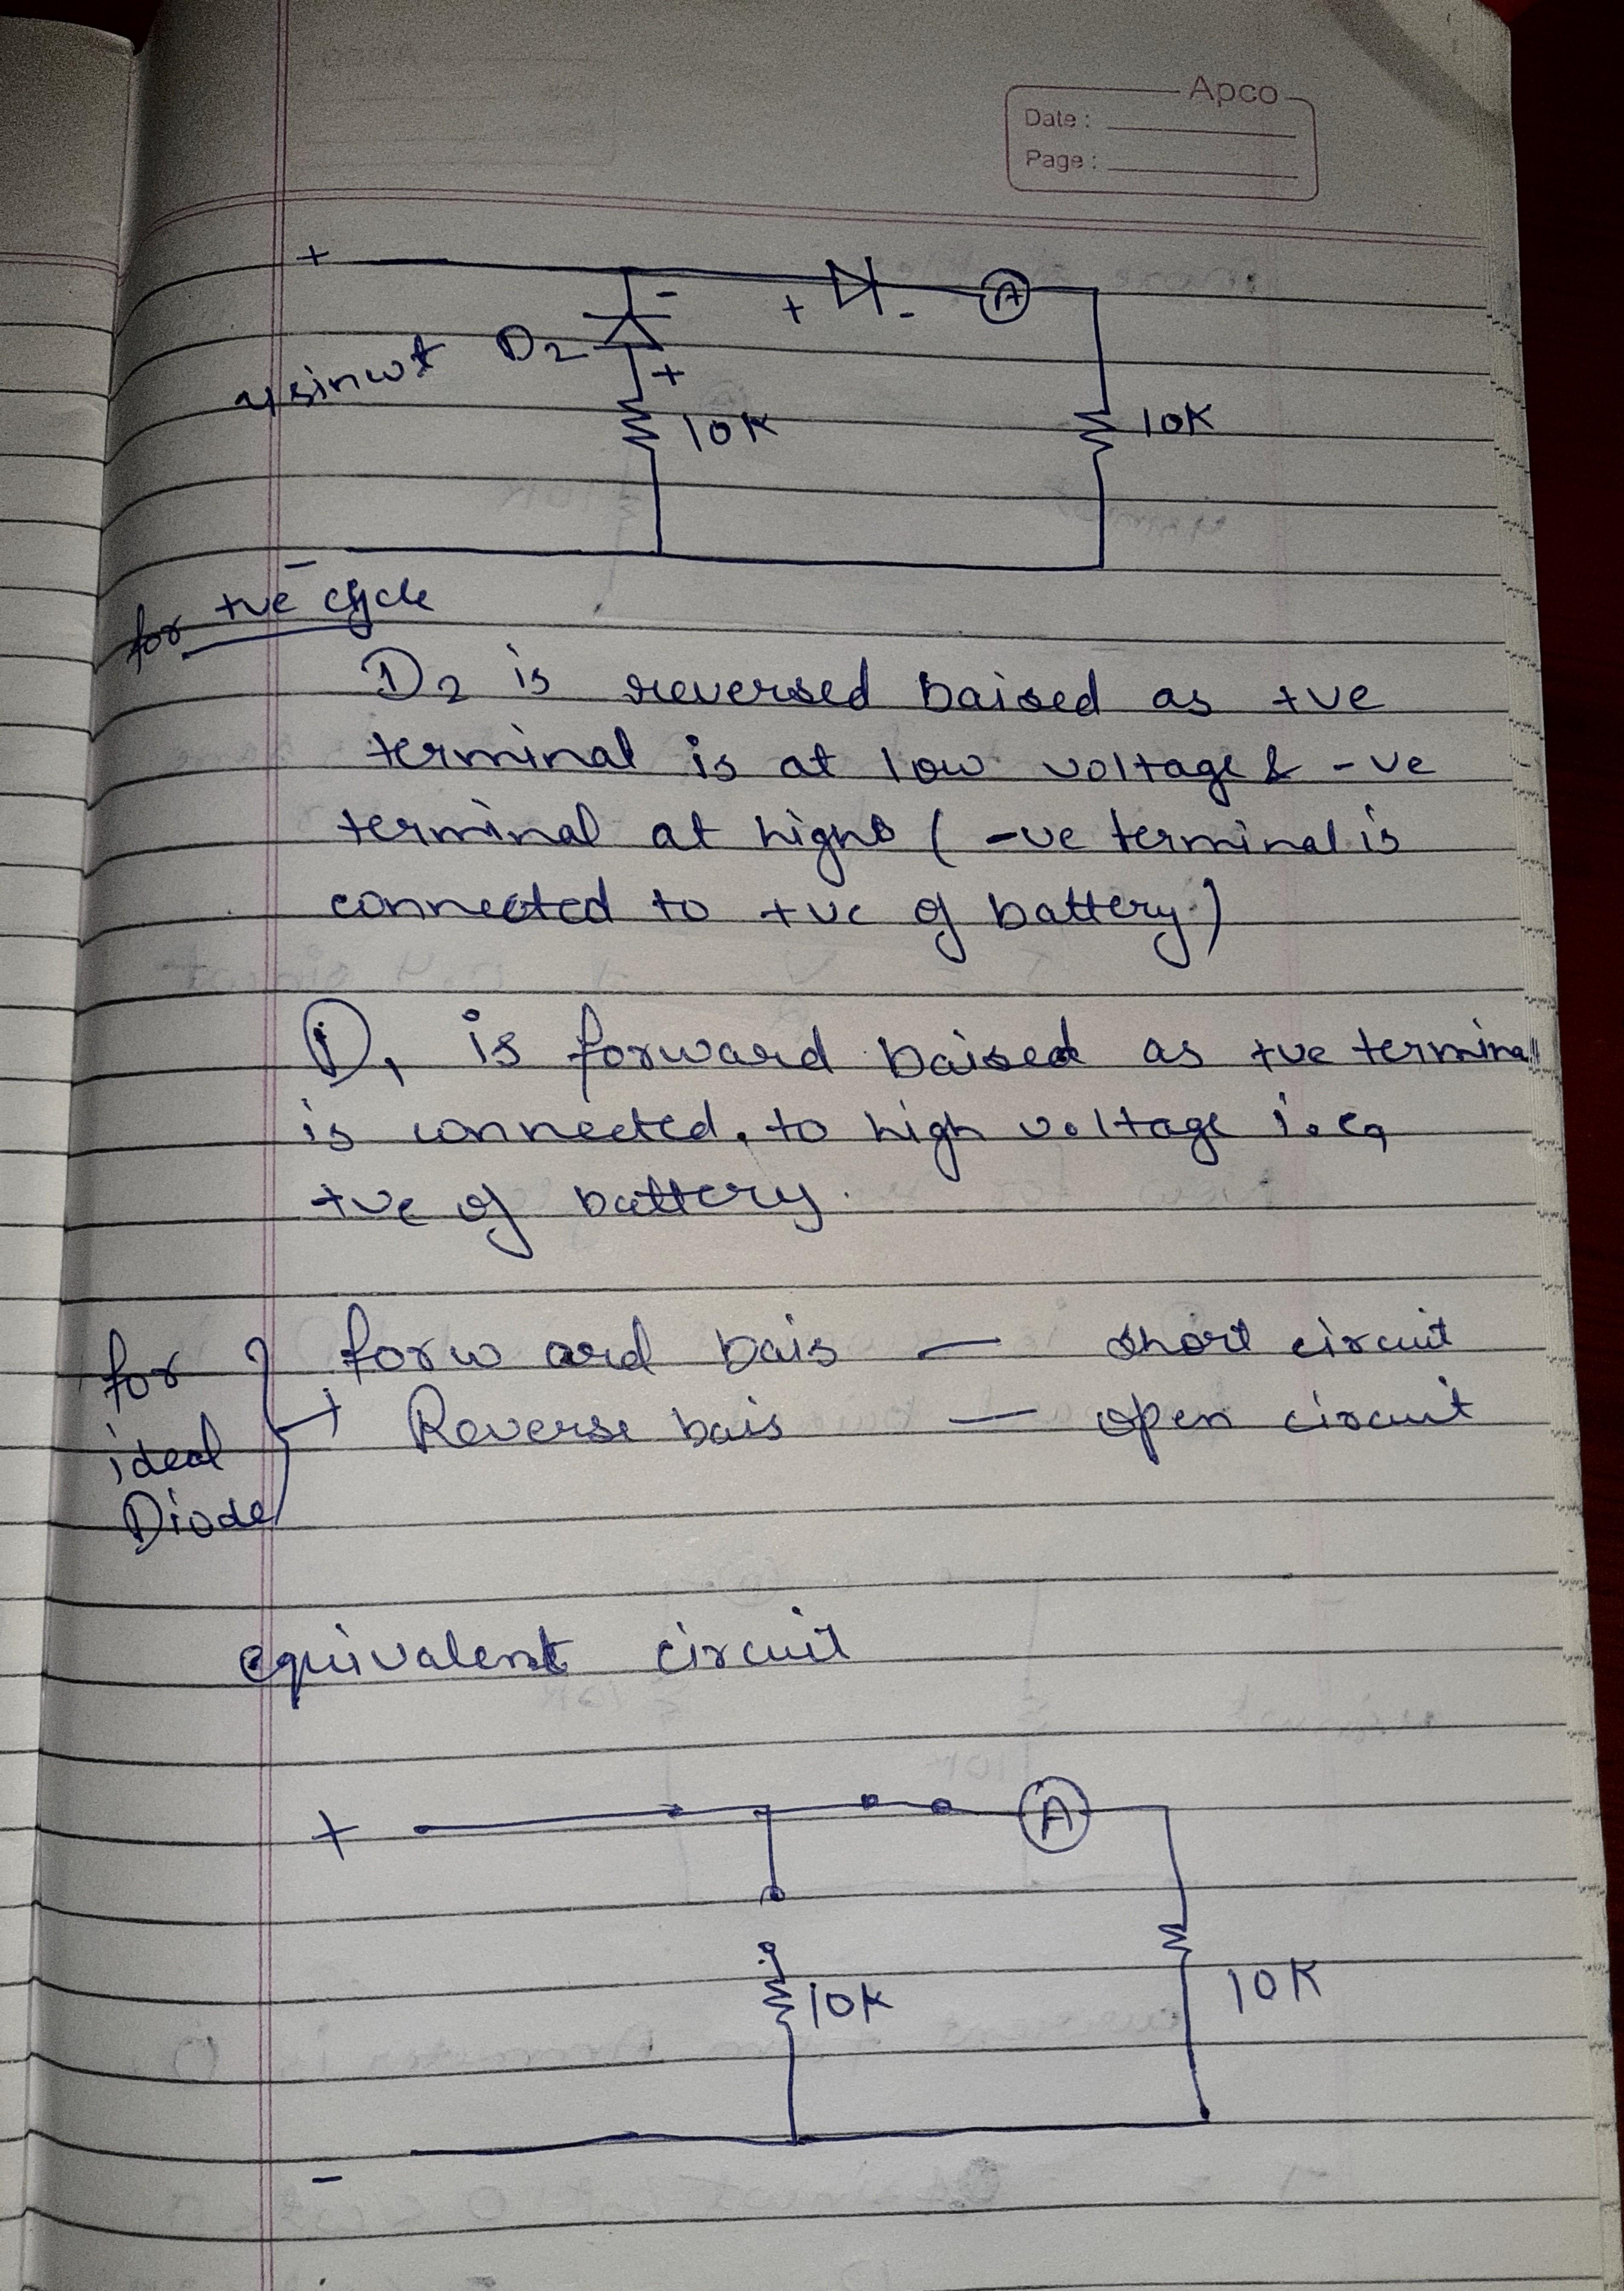 Apco
Date :
Page :
+
+ - A
- 
4sinwt D2
+
10K 10K
-
for +ve cycle
D2 is reversed baised as +ve
terminal is at low voltage & -ve
terminal at high (-ve terminal is
connected to +ve of battery)
D1 is forward baised as +ve terminal
is connected to high voltage i.e,
+ve of battery.
for ideal Diode
forward bais — short circuit
Reverse bais — open circuit
equivalent circuit
+ A
10K 10K
-